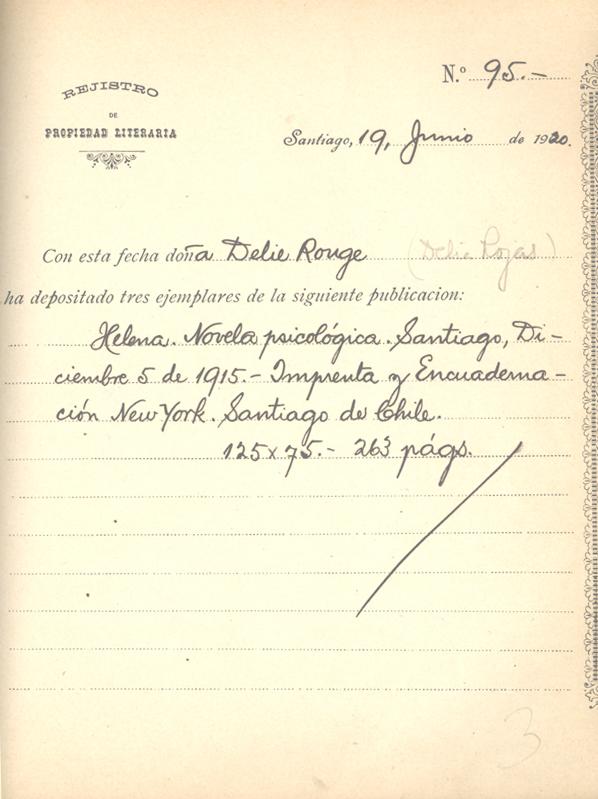 N.º 95.-
REJISTRO
DE
PROPIEDAD LITERARIA
Santiago, 19, Junio de 1920.
Con esta fecha doña Delie Rouge (Delia Rojas)
ha depositado tres ejemplares de la siguiente publicacion:
Helena. Novela psicológica. Santiago, Di-
ciembre 5 de 1915.- Imprenta y Encuaderna-
ción New York. Santiago de Chile.
125 x 75.- 263 págs.
3